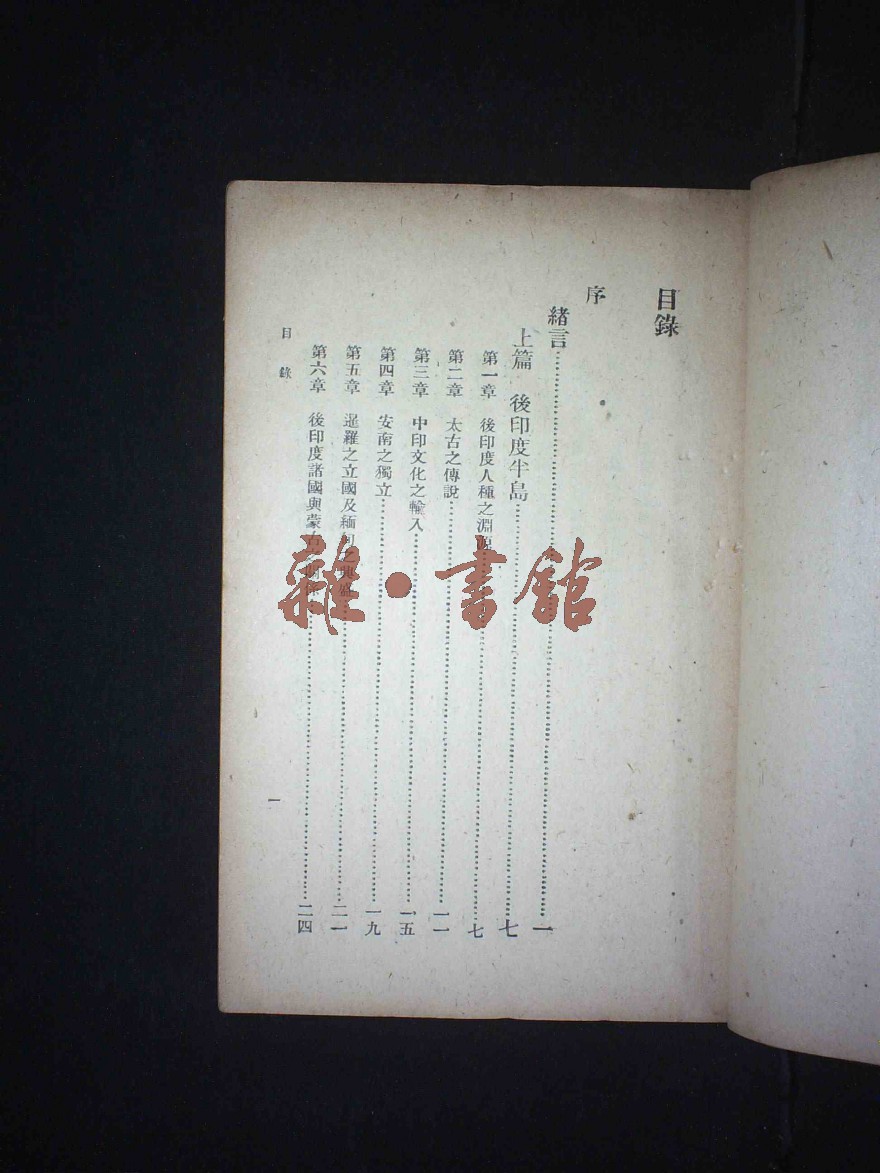 目錄
序
緒言……一
上篇 後印度半島……七
第一章 後印度人種之淵源……七
第二章 太古之傳說……一一
第三章 中印文化之輸入……一五
第四章 安南之獨立……一九
第五章 暹羅之立國及緬甸之興盛……二一
第六章 後印度諸國與蒙古之關係……二四
目錄
一
雜·書館